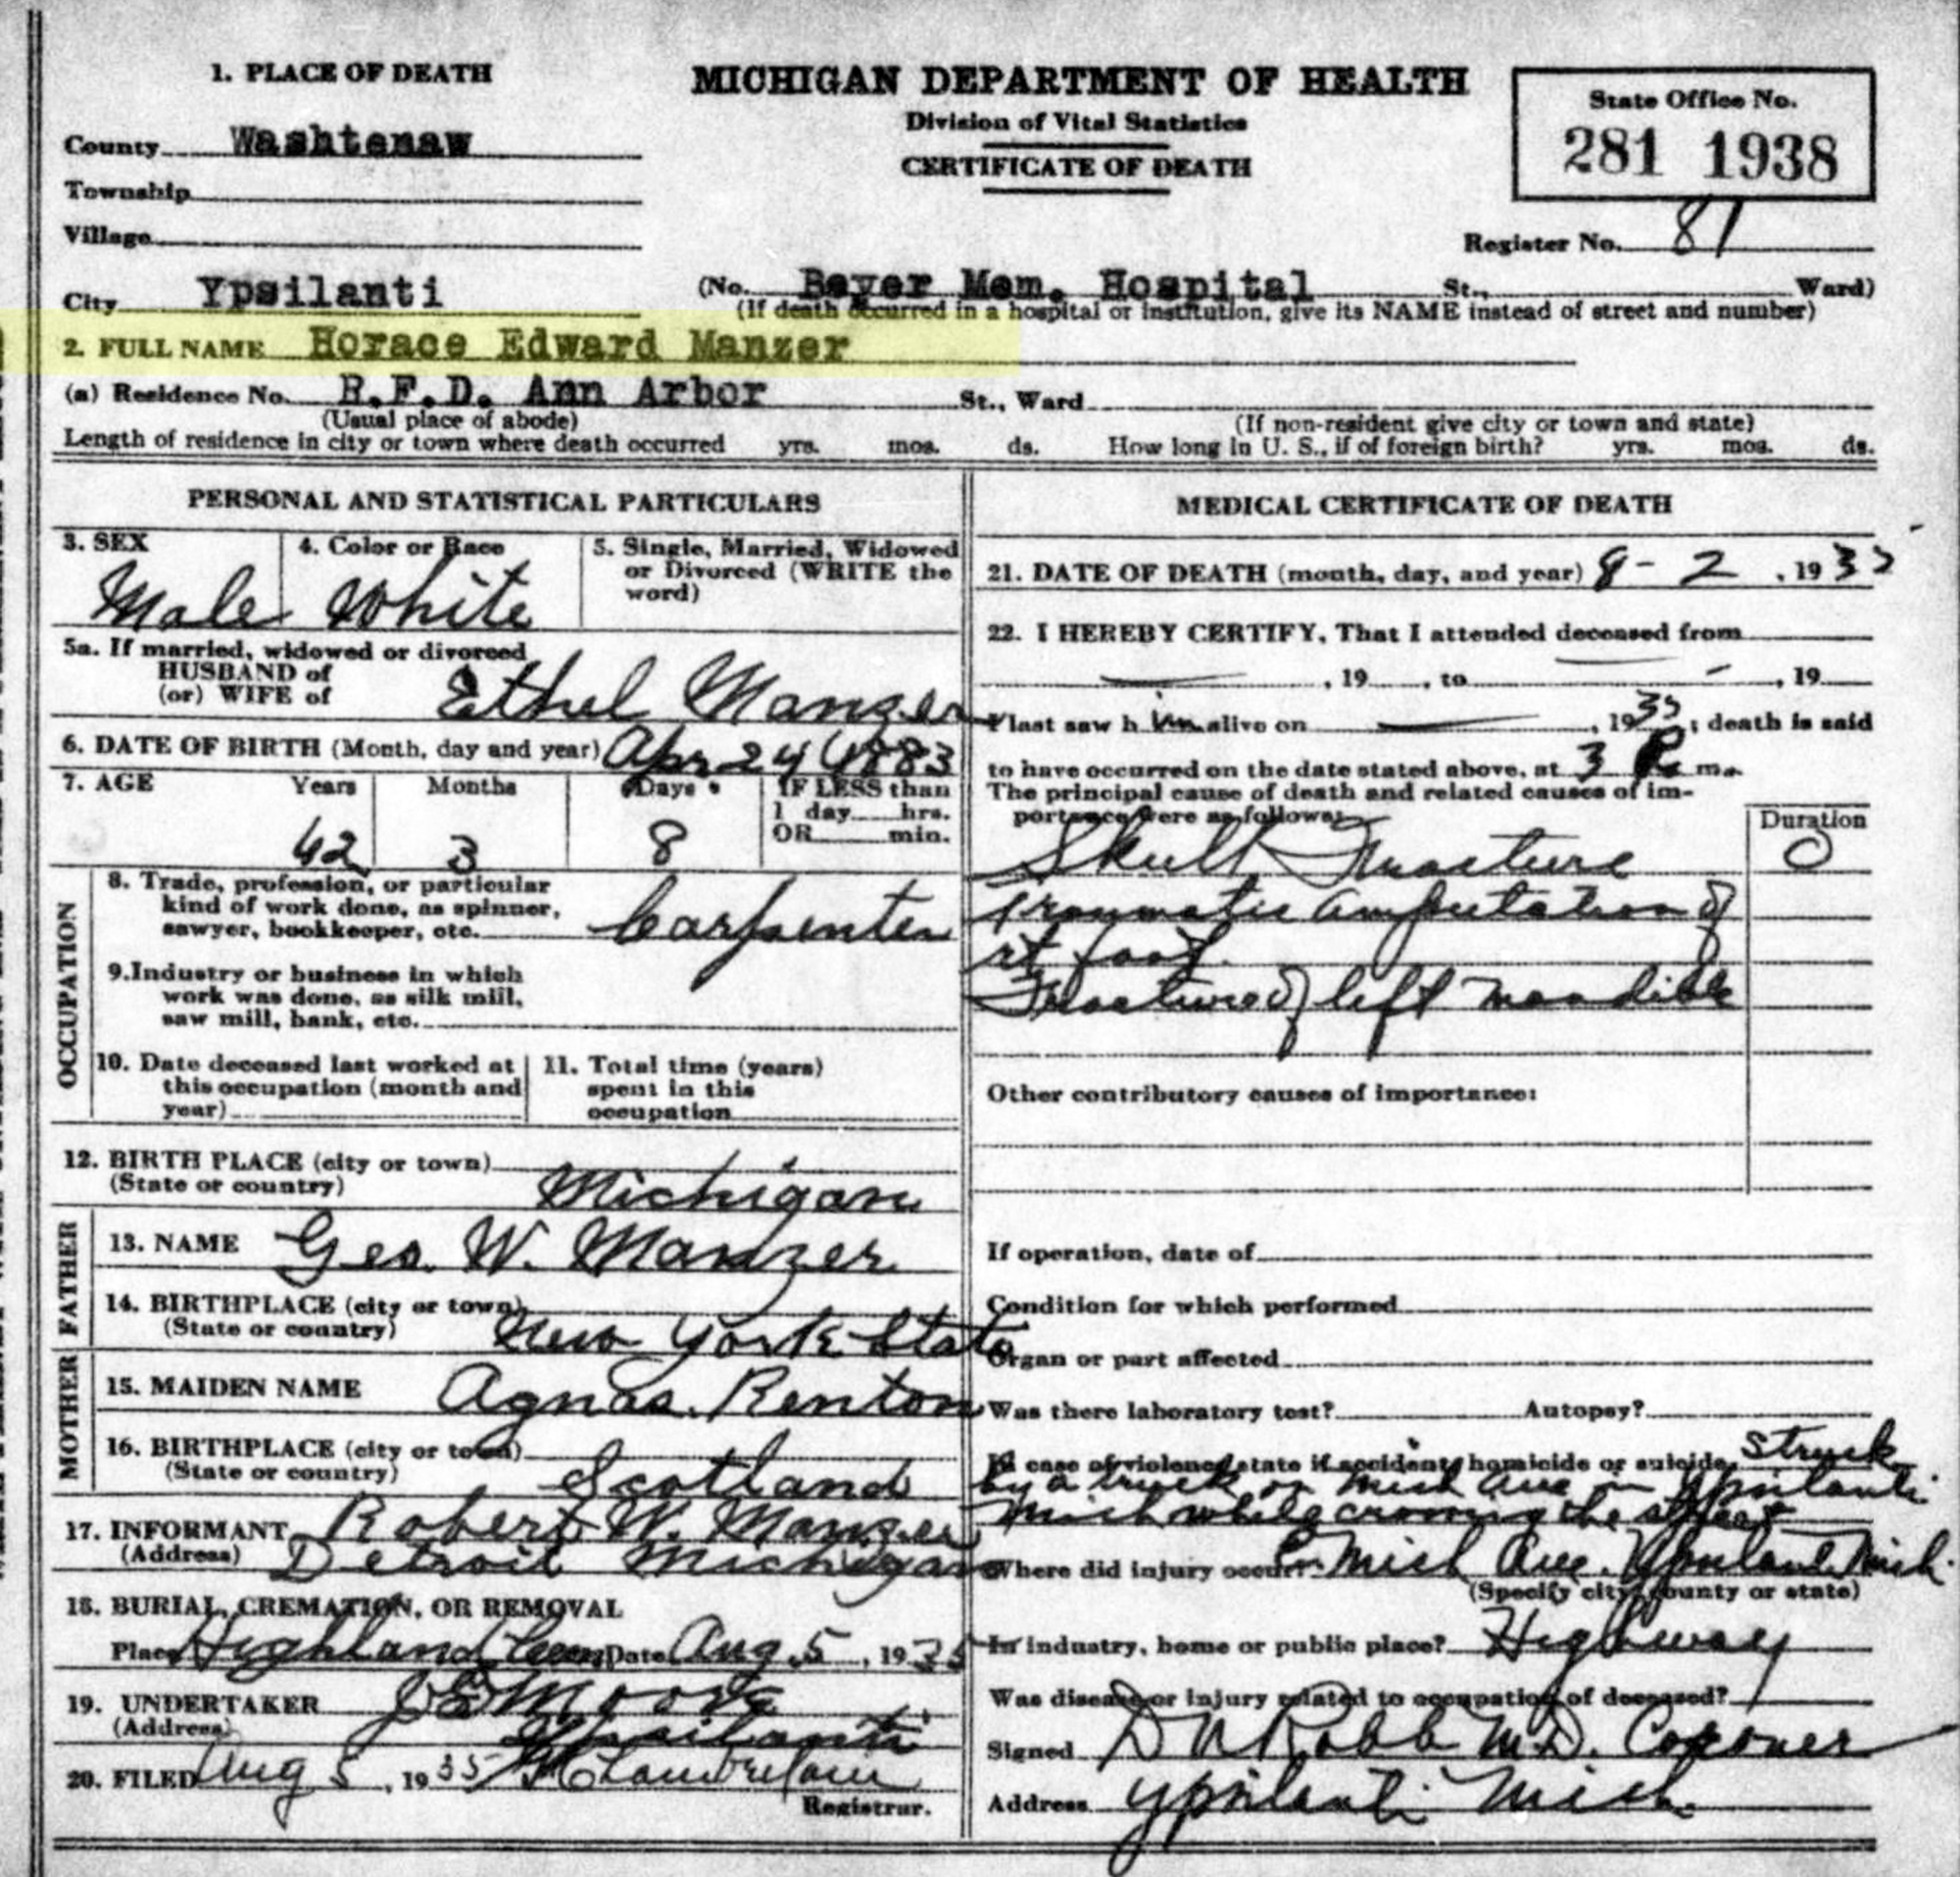 1. PLACE OF DEATH
MICHIGAN DEPARTMENT OF HEALTH
Division of Vital Statistics
CERTIFICATE OF DEATH
State Office No.
281 1938
Register No. 81
County Washtenaw
Township
Village
City Ypsilanti (No. Beyer Mem. Hospital St., Ward)
(If death occurred in a hospital or institution, give its NAME instead of street and number)
2. FULL NAME Horace Edward Manzer
(a) Residence No. R.F.D. Ann Arbor St., Ward
(Usual place of abode) (If non-resident give city or town and state)
Length of residence in city or town where death occurred yrs. mos. ds. How long in U. S., if of foreign birth? yrs. mos. ds.
PERSONAL AND STATISTICAL PARTICULARS
3. SEX
Male
4. Color or Race
White
5. Single, Married, Widowed
or Divorced (WRITE the
word)
5a. If married, widowed or divorced
HUSBAND of
(or) WIFE of Ethel Manzer
6. DATE OF BIRTH (Month, day and year) Apr 24 1883
7. AGE Years Months Days IF LESS than
1 day hrs.
OR min.
42 3 8
OCCUPATION
8. Trade, profession, or particular
kind of work done, as spinner,
sawyer, bookkeeper, etc. Carpenter
9. Industry or business in which
work was done, as silk mill,
saw mill, bank, etc.
10. Date deceased last worked at
this occupation (month and
year)
11. Total time (years)
spent in this
occupation
12. BIRTH PLACE (city or town)
(State or country) Michigan
FATHER
13. NAME Geo. W. Manzer
14. BIRTHPLACE (city or town)
(State or country) New York State
MOTHER
15. MAIDEN NAME Agnes Renton
16. BIRTHPLACE (city or town)
(State or country) Scotland
17. INFORMANT Robert W. Manzer
(Address) Detroit Michigan
18. BURIAL, CREMATION, OR REMOVAL
Place Highland Cem Date Aug. 5, 1935
19. UNDERTAKER J E Moore
(Address) Ypsilanti
20. FILED Aug 5, 1935
Registrar.
MEDICAL CERTIFICATE OF DEATH
21. DATE OF DEATH (month, day, and year) 8-2, 1935
22. I HEREBY CERTIFY, That I attended deceased from
, 19 , to , 19
I last saw him alive on , 1935; death is said
to have occurred on the date stated above, at 3 P. m.
The principal cause of death and related causes of im-
portance were as follows:
Duration
Skull Fracture 0
Traumatic amputation of
rt foot.
Fracture of left mandible
Other contributory causes of importance:
If operation, date of
Condition for which performed
Organ or part affected
Was there laboratory test? Autopsy?
In case of violence, state if accident, homicide or suicide struck
by a truck on Mich Ave in Ypsilanti
Mich while crossing the street
Where did injury occur? On Mich Ave. Ypsilanti Mich
(Specify city, county or state)
In industry, home or public place? Highway
Was disease or injury related to occupation of deceased?
Signed D N Robb M.D. Coroner
Address Ypsilanti Mich.